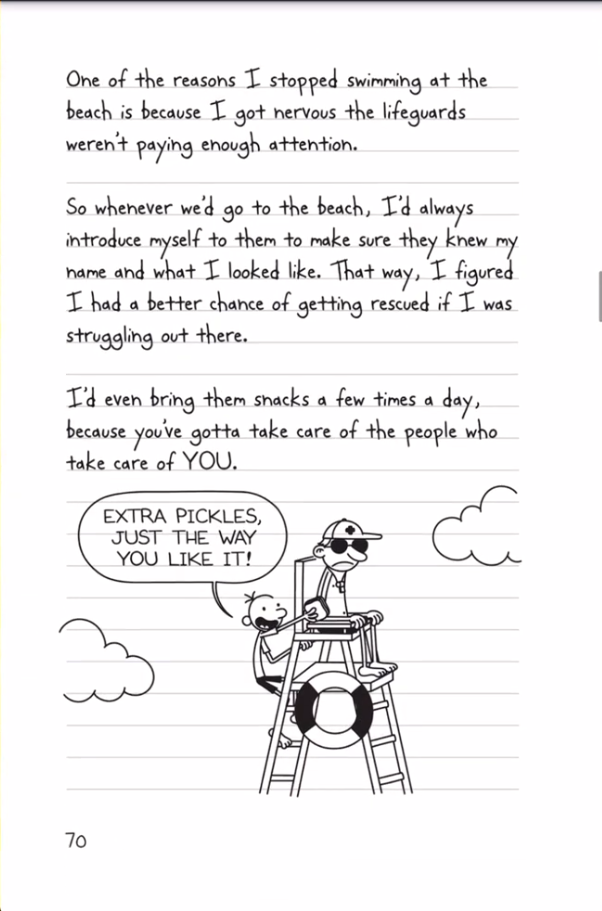 One of the reasons I stopped swimming at the
beach is because I got nervous the lifeguards
weren't paying enough attention.
So whenever we'd go to the beach, I'd always
introduce myself to them to make sure they knew my
name and what I looked like. That way, I figured
I had a better chance of getting rescued if I was
struggling out there.
I'd even bring them snacks a few times a day,
because you've gotta take care of the people who
take care of YOU.
EXTRA PICKLES,
JUST THE WAY
YOU LIKE IT!
70